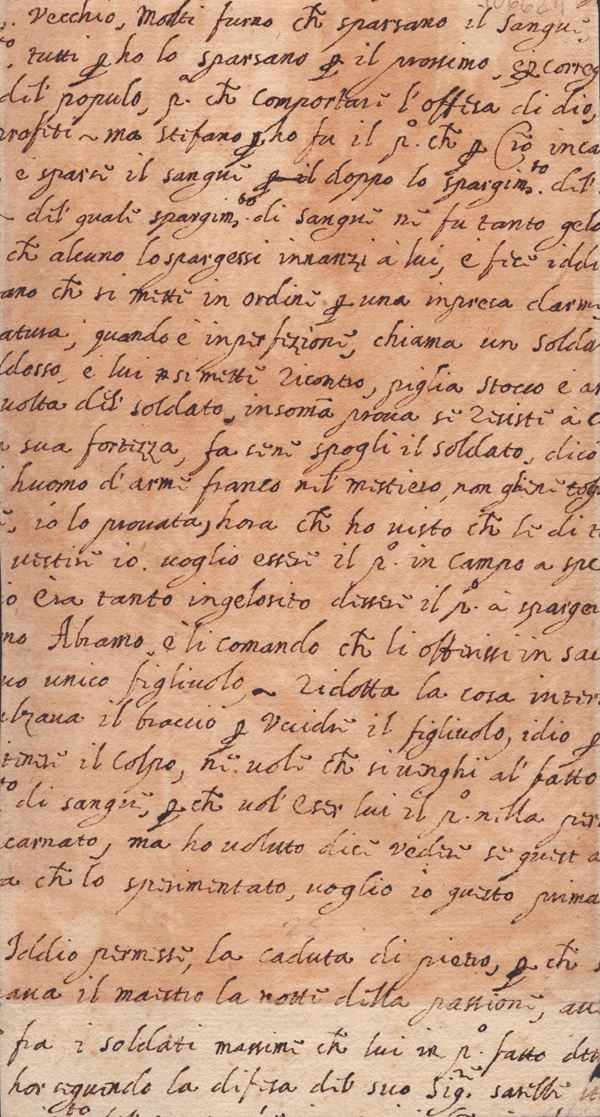 Vecchio, Molti furno ch̃ sparsano il sangue,
tutti ꝑ ho lo sparsano ꝑ il prossimo, correg
dil' populo, pª. ch̃ comportare l'offesa di dio,
profeti ~ ma stifano ꝑ ho fu il pº. ch̃ ꝑ Cio inca
e sparse il sangue ꝑ il doppo lo spargim.to dil'
dil' quale spargim.to di sangue ne fu tanto gelo
ch̃ alcuno lo spargessi innanzi à lui, e fice iddi
ano ch̃ si mette in ordine ꝑ una inpresa darme
atura, quando è inperfezione, chiama un solda
ddosso, e lui si mette ricontro, piglia stocco e ar
uolta del' soldato, insomã proua se resiste à c
sua fortezza, fa sene spogli il soldato, dico
huomo d'arme franco nel' mestiero, non gliene
io lo prouata, hora ch̃ ho uisto ch̃ le di t
uestire io. uoglio essere il pº. in campo a spe
io èra tanto ingelosito dessere il pº. à sparger
no Abramo, è li comando ch̃ li offerissi in sac
uo unico figliuolo ~ ridotta la cosa inter
alzaua il braccio ꝑ Vccidre il figliuolo, idio ꝑ
tenere il colpo, ne uole ch̃ si uenghi al' fatto
to di sangue, ꝑ ch̃ uol' eser lui il pº. nella per
carnato, ma ho uoluto dice vedere se quest a
a ch̃ lo sperimentato, uoglio io questo prima
Iddio permesse, la caduta di pietro, ꝑ ch̃ s
aua il maestro la notte della passione, au
fra i soldati massime ch̃ lui in pº. fatto
hor seguendo la difesa del suo Sig.re sarebbe